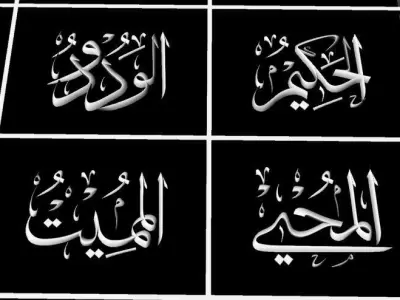 الحكيم
الودود
المحيي
المميت